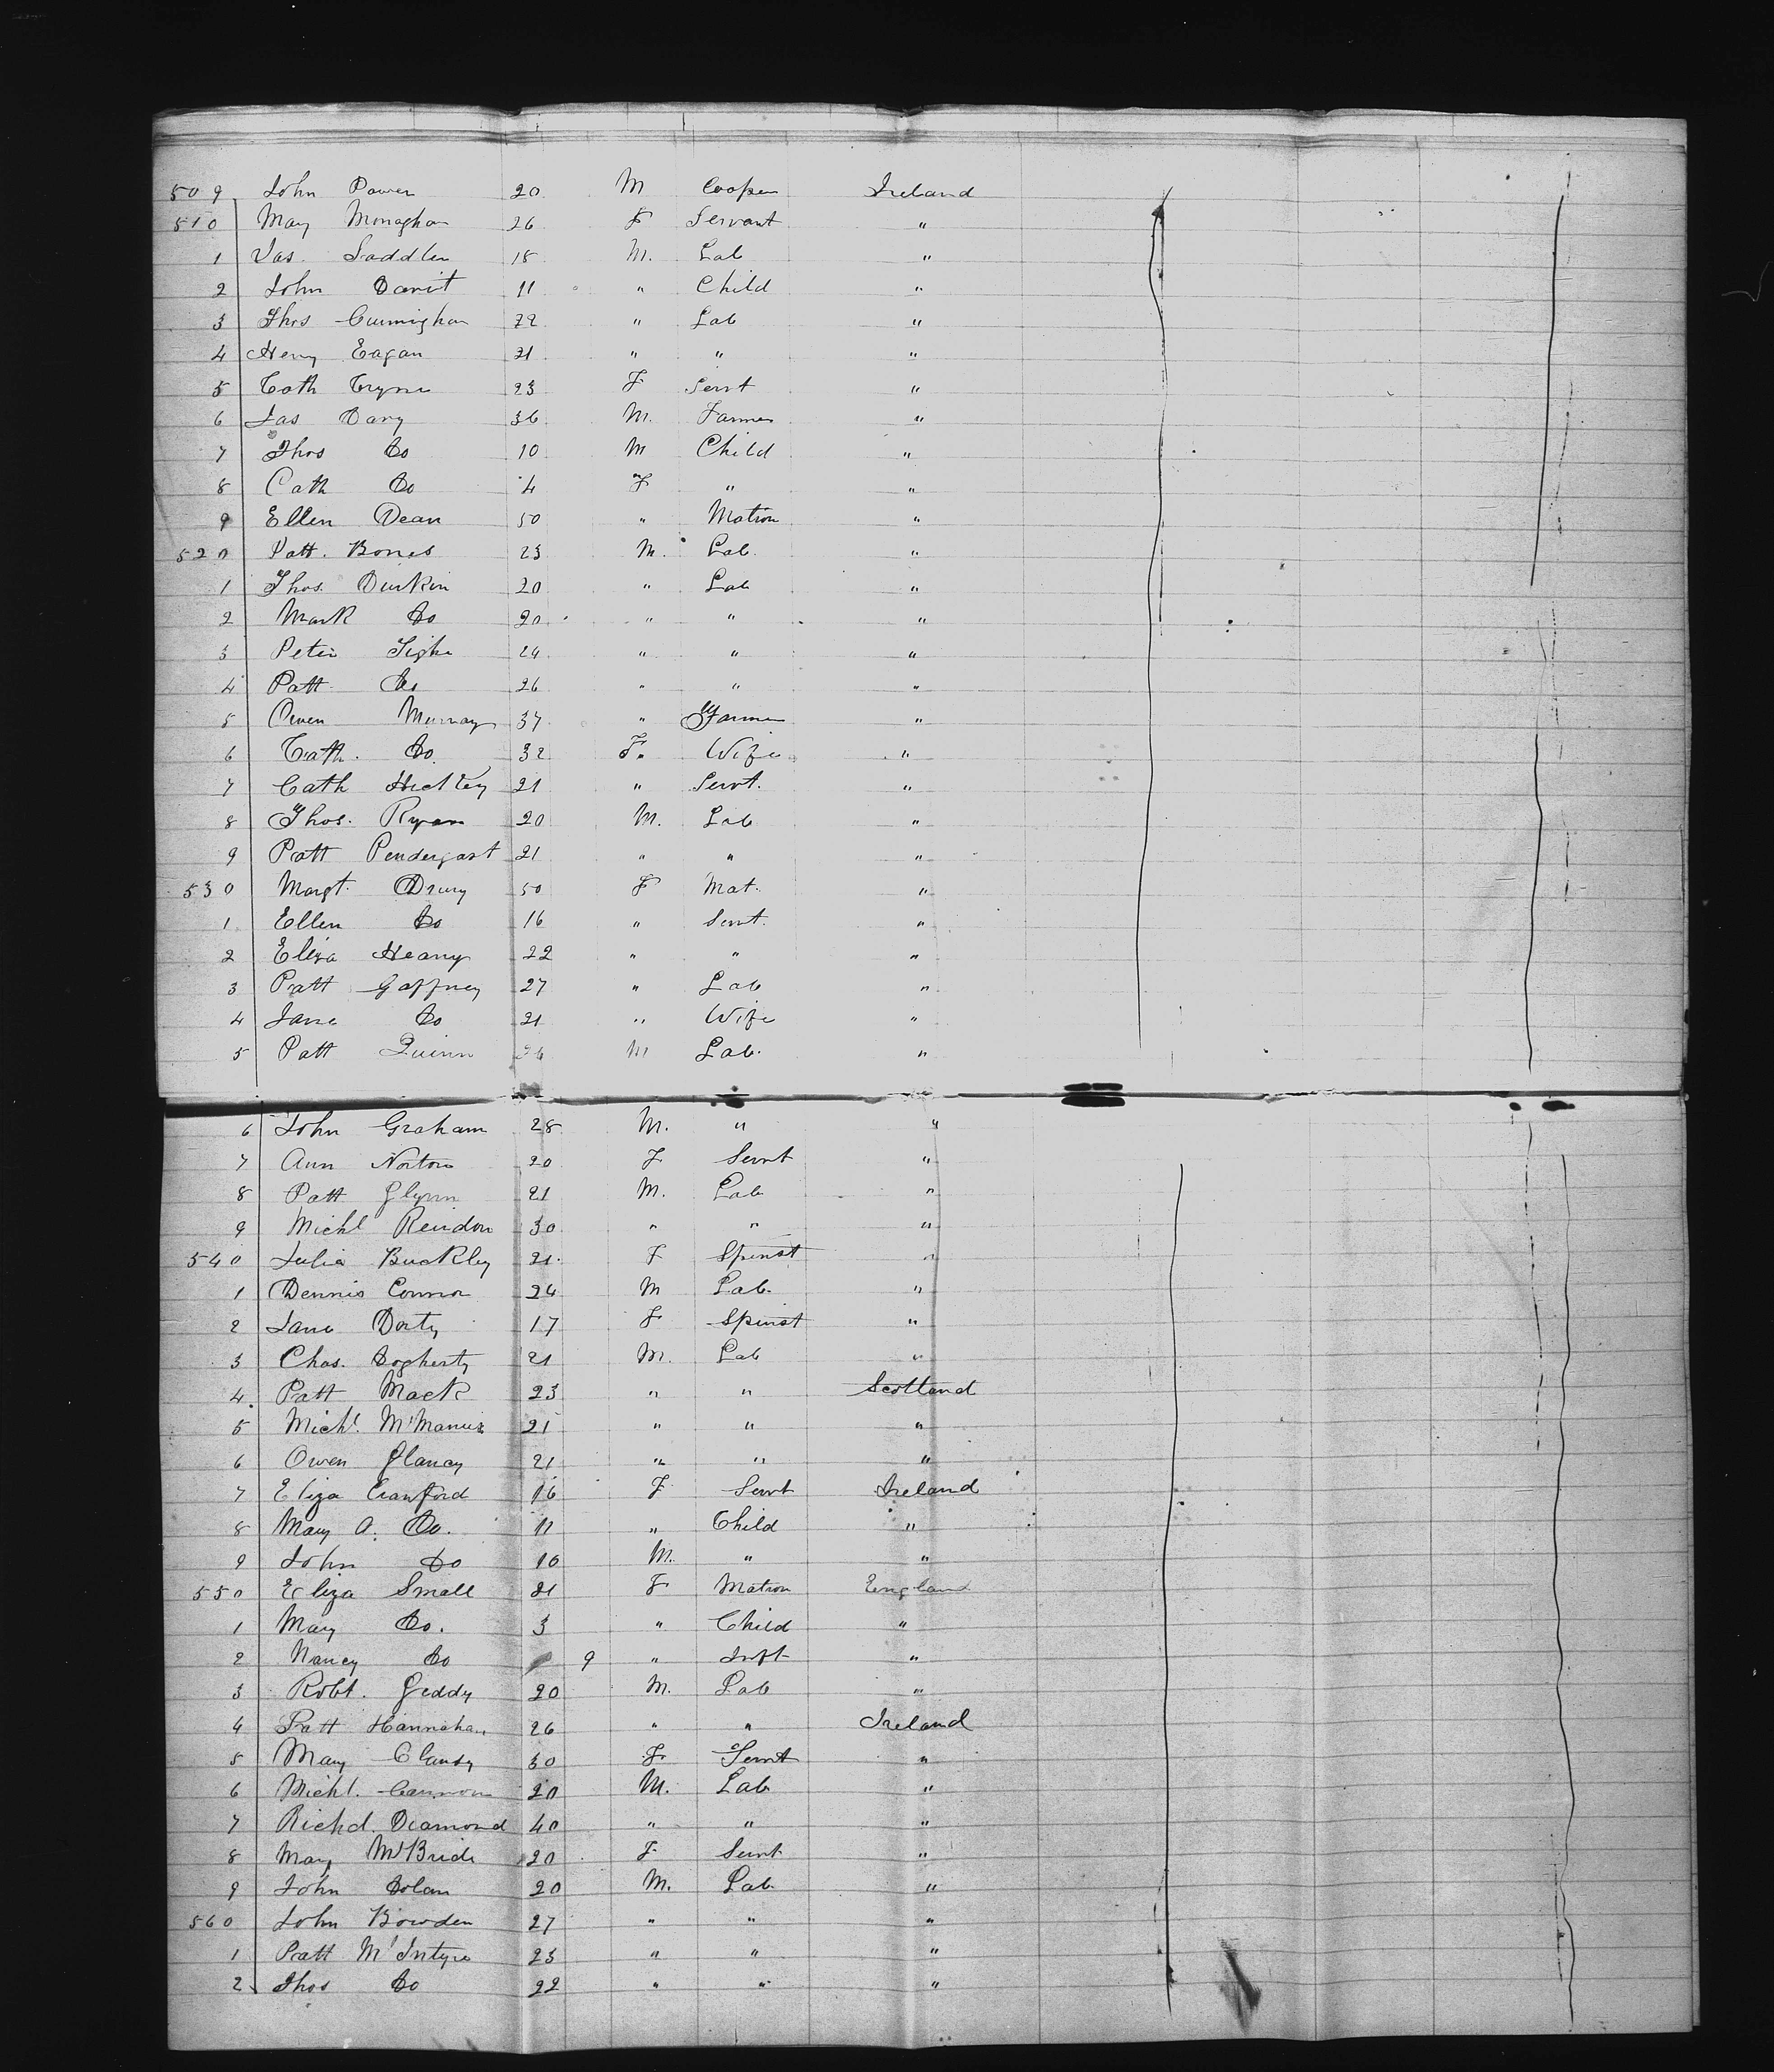 509 John Power 20 M Cooper Ireland
510 Mary Monaghan 26 F Servant "
1 Jas. Saddler 18 M. Lab "
2 John Davit 11 " Child "
3 Thos Cunnighan 22 " Lab "
4 Henry Eagan 21 " " "
5 Cath 23 F Servt "
6 Jas Davy 36 M. Farmer "
7 Thos Do 10 M Child "
8 Cath Do 4 F " "
9 Ellen Dean 50 " Matron "
520 Patt. Bones 23 M. Lab. "
1 Thos. Durkin 20 " Lab "
2 Mark Do 20 " " "
3 Peter Tighe 24 " " "
4 Patt Do 26 " " "
5 Owen Murray 37 " Farmer "
6 Cath. Do 32 F. Wife "
7 Cath Hickey 21 " Servt. "
8 Thos. Ryan 20 M. Lab "
9 Patt Pendergast 21 " " "
530 Margt. Drury 50 F Mat. "
1 Ellen Do 16 " Servt. "
2 Eliza Heany 22 " " "
3 Patt Gaffney 27 " Lab "
4 Jane Do 21 " Wife "
5 Patt Quinn 26 M Lab. "
6 John Graham 28 M. " "
7 Ann Norton 20 F Servt "
8 Patt Glynn 21 M. Lab "
9 Michl Reirdon 30 " " "
540 Julia Buckley 21 F Spinst "
1 Dennis Connor 24 M Lab. "
2 Jane Doty 17 F Spinst "
3 Chas. Dogherty 21 M. Lab "
4 Patt Mack 23 " " Scotland
5 Michl. McManus 21 " " "
6 Owen Glancy 21 " " "
7 Eliza Crawford 16 F Servt Ireland
8 Mary A. Do. 11 " Child "
9 John Do 10 M. " "
550 Eliza Small 21 F Matron England
1 Mary Do. 3 " Child "
2 Nancy Do 9 " Inft "
3 Robt. Geddy 20 M. Lab "
4 Patt Hannahan 26 " " Ireland
5 Mary Clancy 30 F Servt "
6 Michl. Cannon 20 M. Lab "
7 Richd. Diamond 40 " " "
8 Mary McBride 20 F Servt "
9 John Dolan 20 M. Lab. "
560 John Bowden 27 " " "
1 Patt McIntyre 23 " " "
2 Thos Do 22 " " "